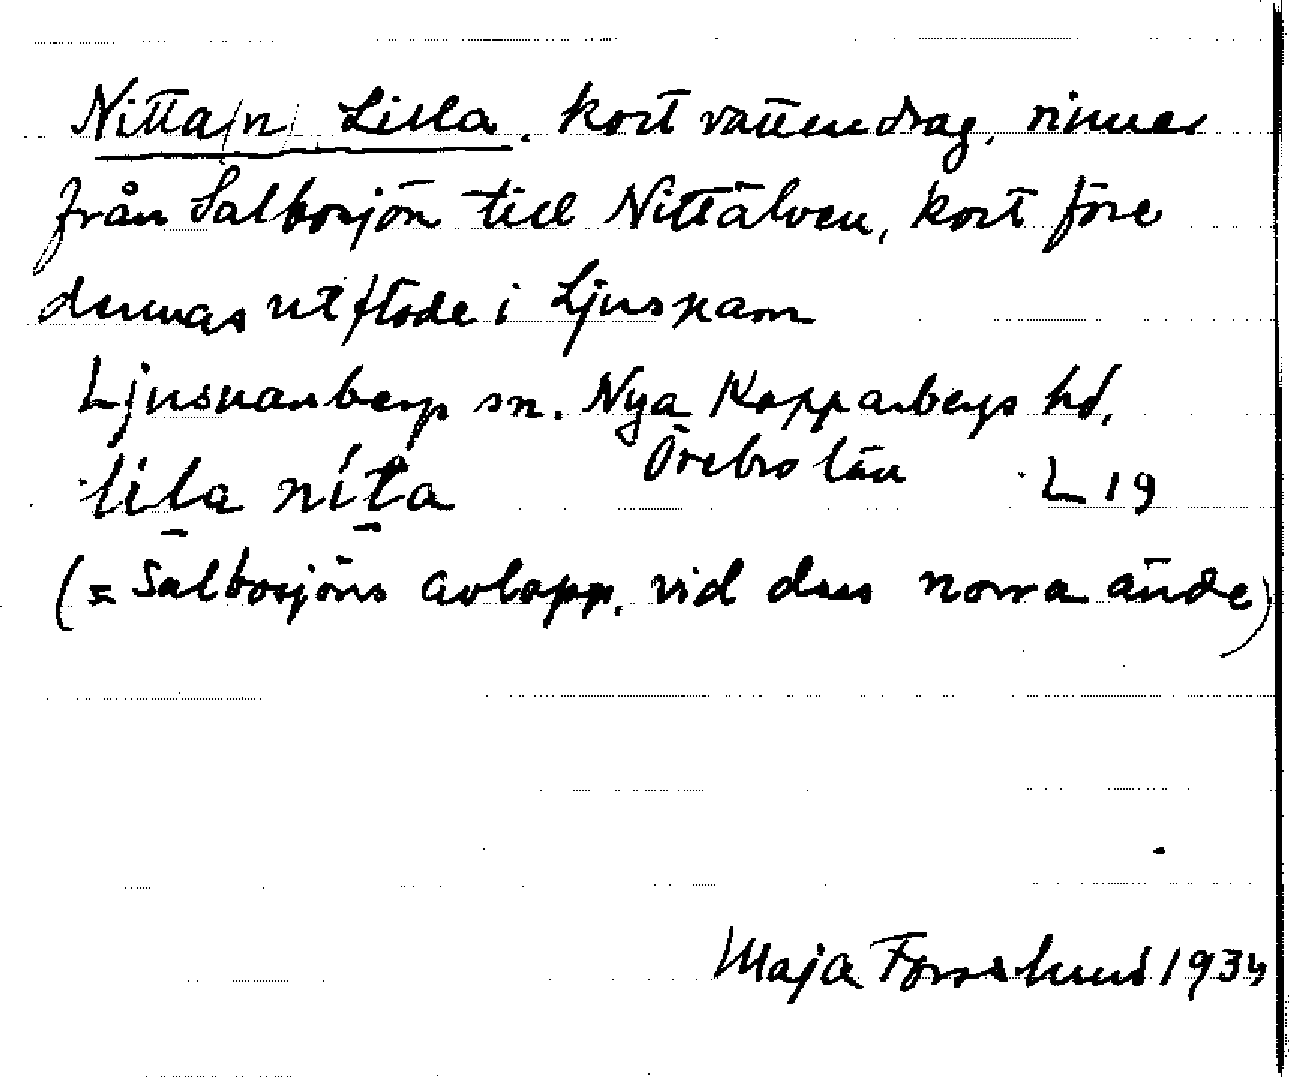 Nitta/n/ Lilla. kort vattendrag, rinner
från Salbosjön till Nittälven, kort före
dennas utflöde i Ljusnarn
Ljusnarsbergs sn. Nya Kopparbergs hd.
Örebro län
lila nita L 19
(= Salbosjöns avlopp. vid dess norra ände)
Maja Forsslund 1934